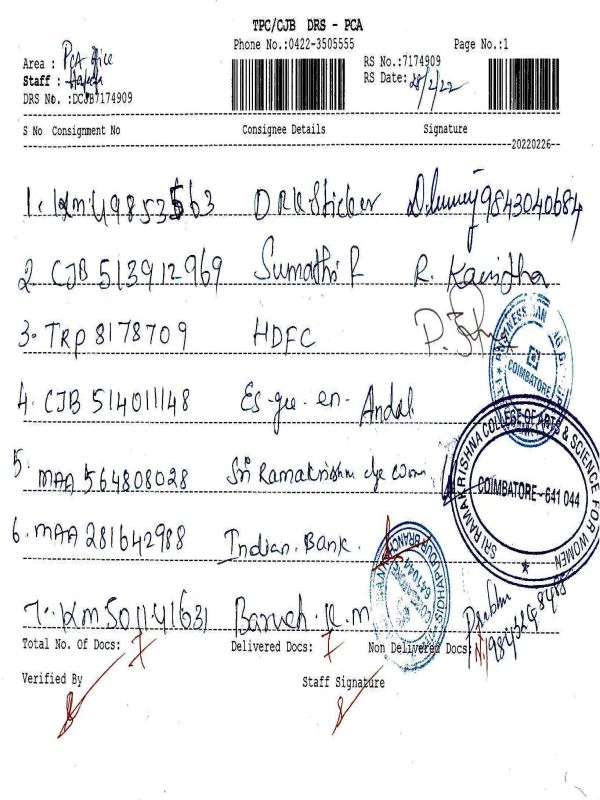 TPC/CJB DRS - PCA
Phone No.:0422-3505555 Page No.:1
Area : PCA office RS No.:7174909
Staff : RS Date: 28/2/22
DRS No. :DCJB7174909
S No Consignment No Consignee Details Signature
20220226
1. KM 49853563 DRK Sticker 9843040684
2. CJB 513912969 Sumathi R R. Kavitha
3. TRP 8178709 HDFC
COIMBATORE
4. CJB 514011148 Es-gee-en- Andal
SRI RAMAKRISHNA COLLEGE OF ARTS & SCIENCE FOR WOMEN
COIMBATORE - 641 044
5. MAA 564808028 Sri Ramakrishna clge Wom
6. MAA 281642988 Indian. Bank.
641044
7. KM 501141631 K.M Prabhu
Total No. Of Docs: 7 Delivered Docs: 7 Non Delivered Docs:
Verified By Staff Signature